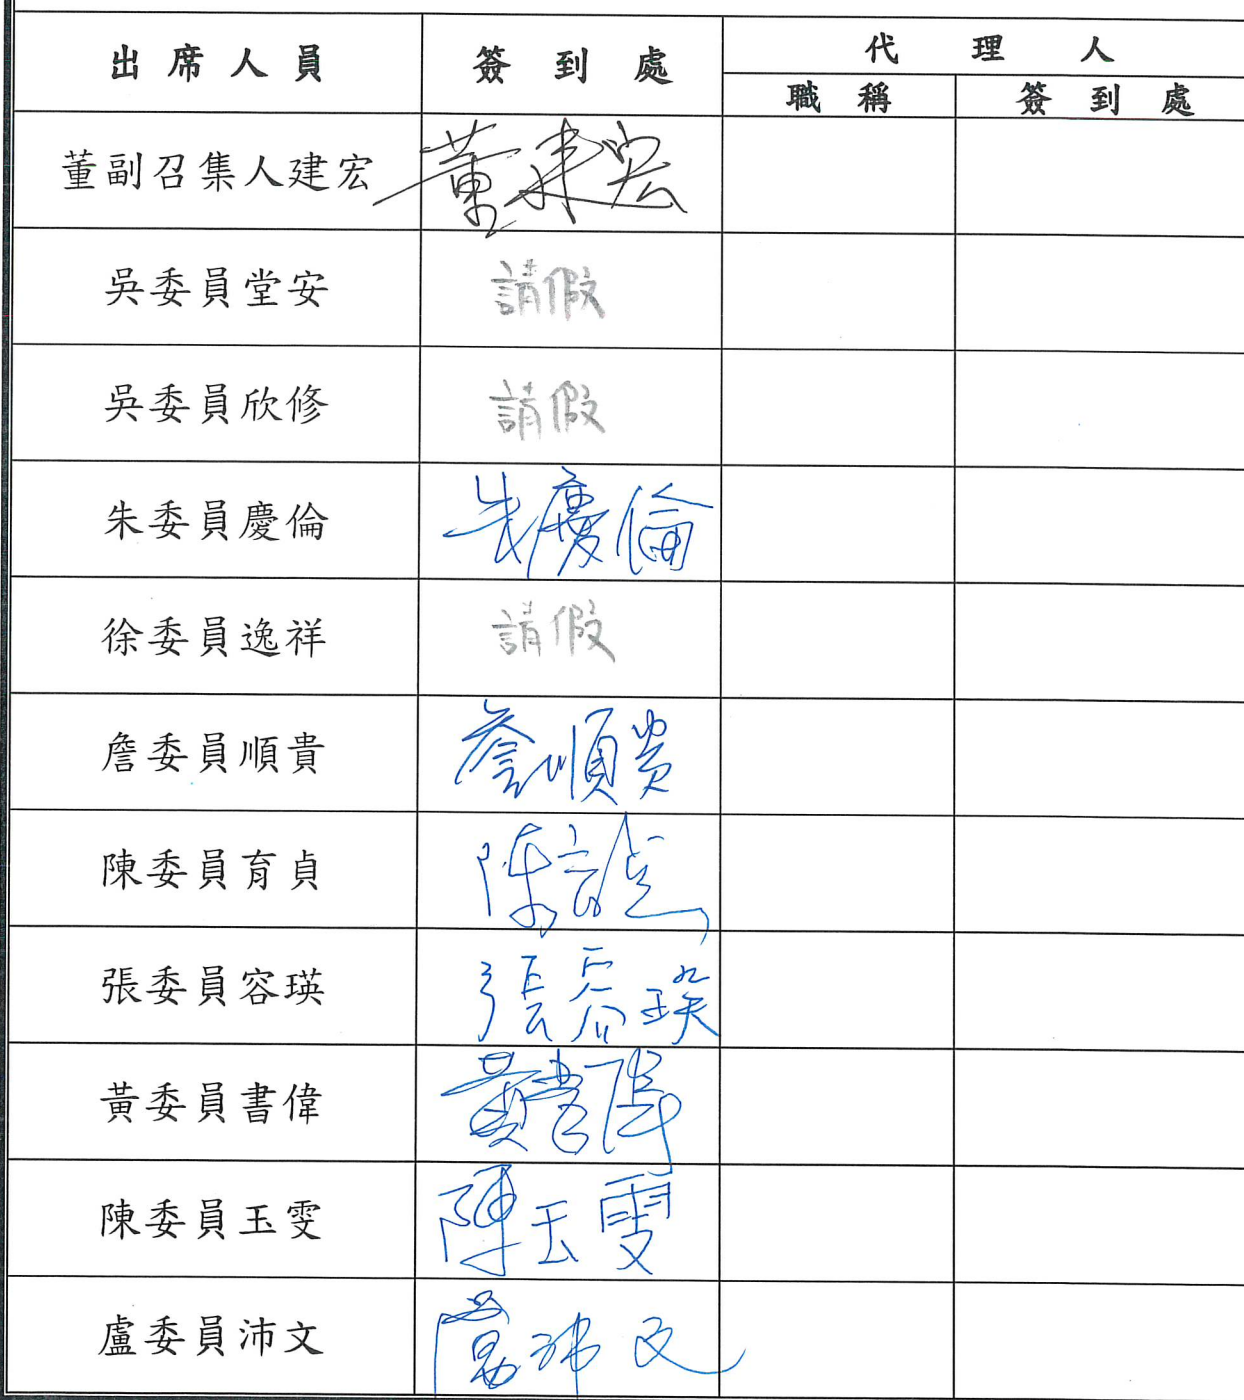 出席人員 簽到處 代理人
職稱 簽到處
董副召集人建宏 董建宏
吳委員堂安 請假
吳委員欣修 請假
朱委員慶倫 朱慶倫
徐委員逸祥 請假
詹委員順貴 詹順貴
陳委員育貞 陳育貞
張委員容瑛 張容瑛
黃委員書偉 黃書偉
陳委員玉雯 陳玉雯
盧委員沛文 盧沛文